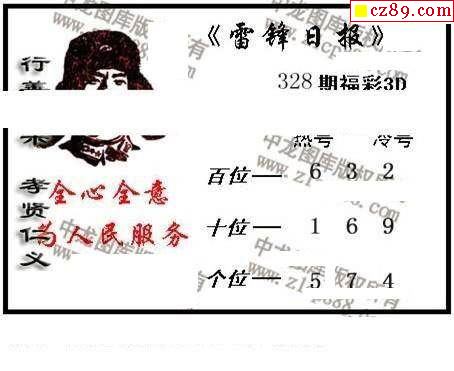 cz89.com
《雷锋日报》
328期福彩3D
热号 冷号
百位— 6 3 2
十位— 1 6 9
个位— 5 7 4
行善
孝贤仁义
全心全意
为人民服务
中龙图库版权所有